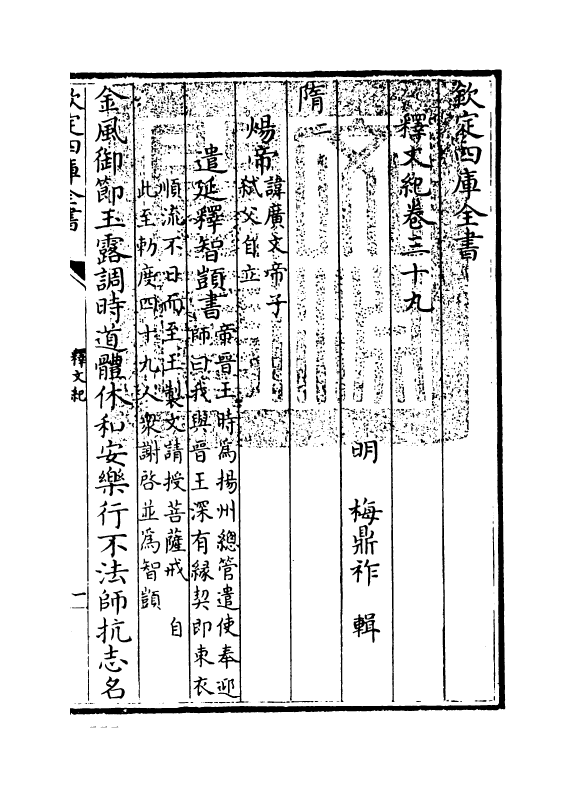 欽定四庫全書
釋文紀卷三十九
明 梅鼎祚 輯
隋一
煬帝諱廣文帝子
弑父自立
遣延釋智顗書帝晉王時為揚州總管遣使奉迎
師曰我與晉王深有緣契即束衣
順流不日而至王製文請授菩薩戒 自
此至斬度四十九人衆謝啓並為智顗
金風御節玉露調時道體休和安樂行不法師抗志名
欽定四庫全書
釋文紀
一